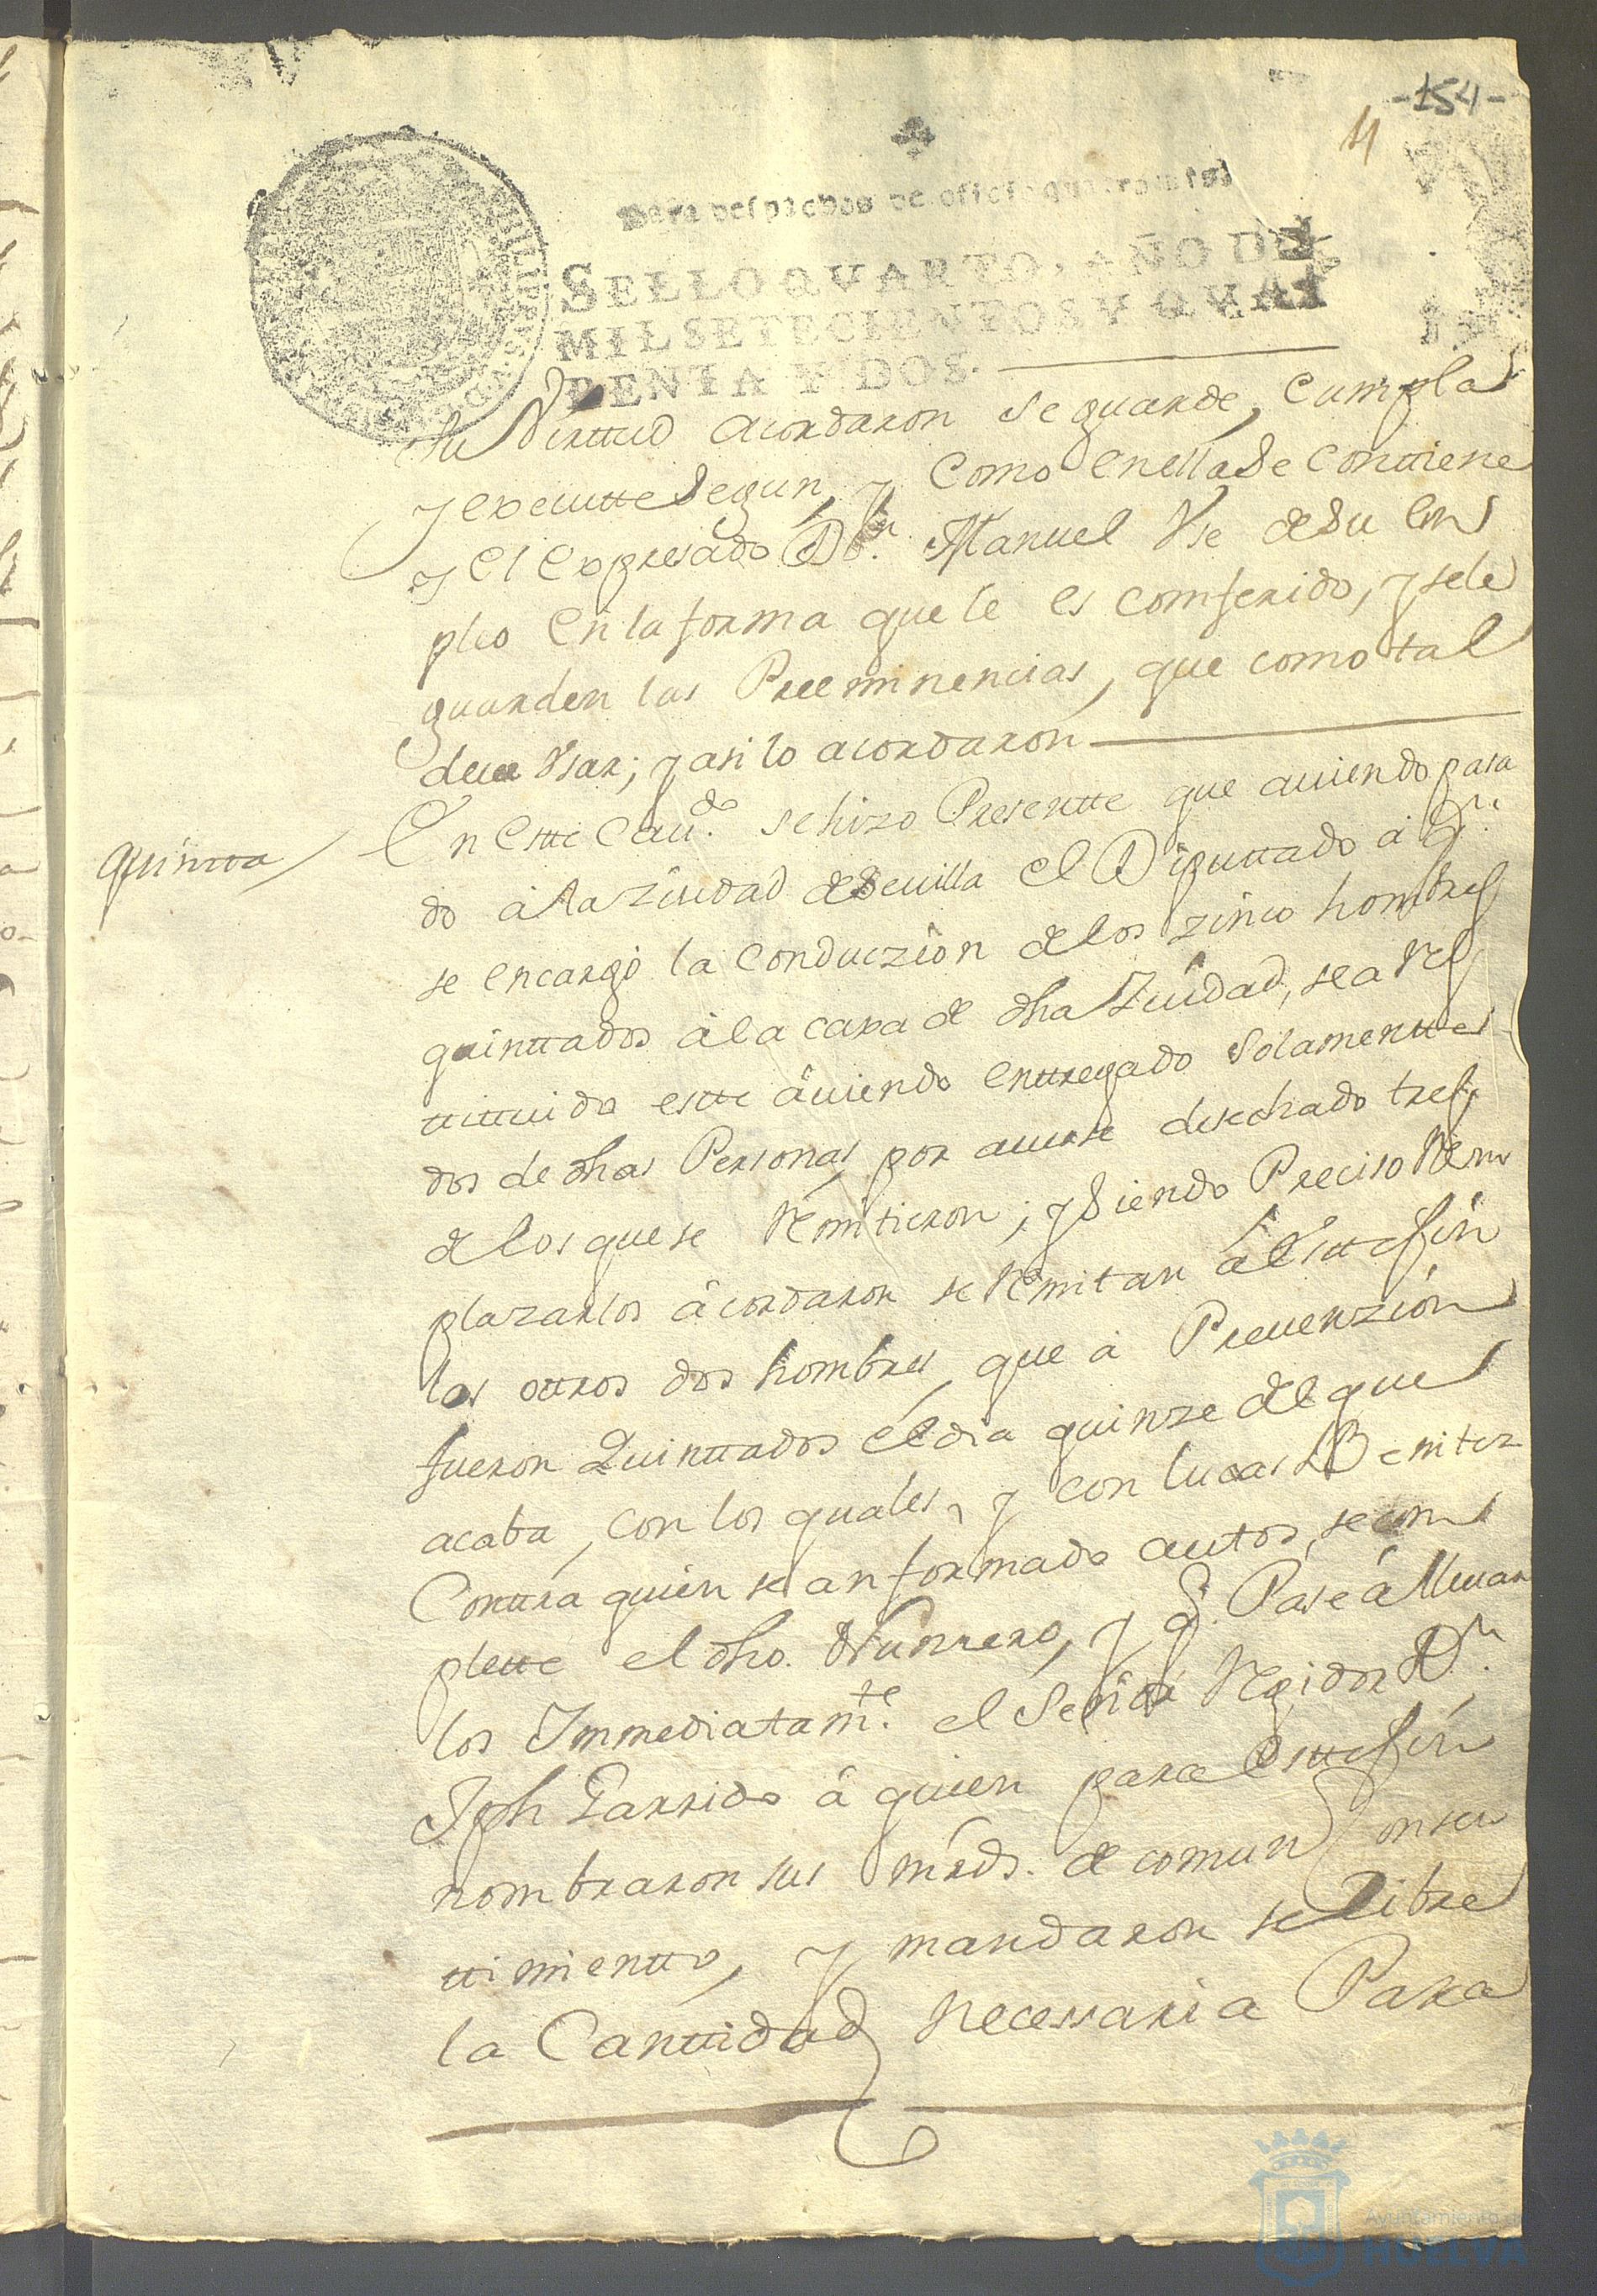 -154-
4
Para despachos de oficio quatro mrs.
SELLO QVARTO, AÑO DE
MIL SETECIENTOS Y QVA
RENTA Y DOS.
su Virttud acordaron se guarde, Cumpla
y executte Segun, y Como en ella Se Conttiene
y el expresado Dn. Manuel Vse de Su Em
pleo en la forma que le es comferido, y se le
guarden las Preeminencias, que como tal
deve Vsar; y asi lo acordaron
Quintta
En Este Cavdo. se hizo Presentte que aviendo pasa
do â la Ziudad de Sevilla el Diputtado â qn.
se encargó la Conduczion de los zinco hombres
quinttados â la caxa de dha Ziudad, se a Res
ttittuido estte âviendo enttregado Solamentte
dos de dhas Personas por averse desechado tres,
de los que se Remitieron; y Siendo Preciso Rem
plazarlos âcordaron se Remitan âl Este fin
los ottros dos hombres, que â Prevenzion
fueron Quinttados el dia quinze del que
acaba, con los quales, y con lucas Benitez
Conttra quien se an formado autos, se com
plette el dho. Numero, y q. Pase â llevar
los Immediatamte. el Señor Regidor Dn.
Jph Garrido â quien para Este fin
nombraron sus mrds. de comun Consen
ttimientto, y mandaron se Libre
la Canttidad necessaria Para
Ayuntamiento de
HUELVA